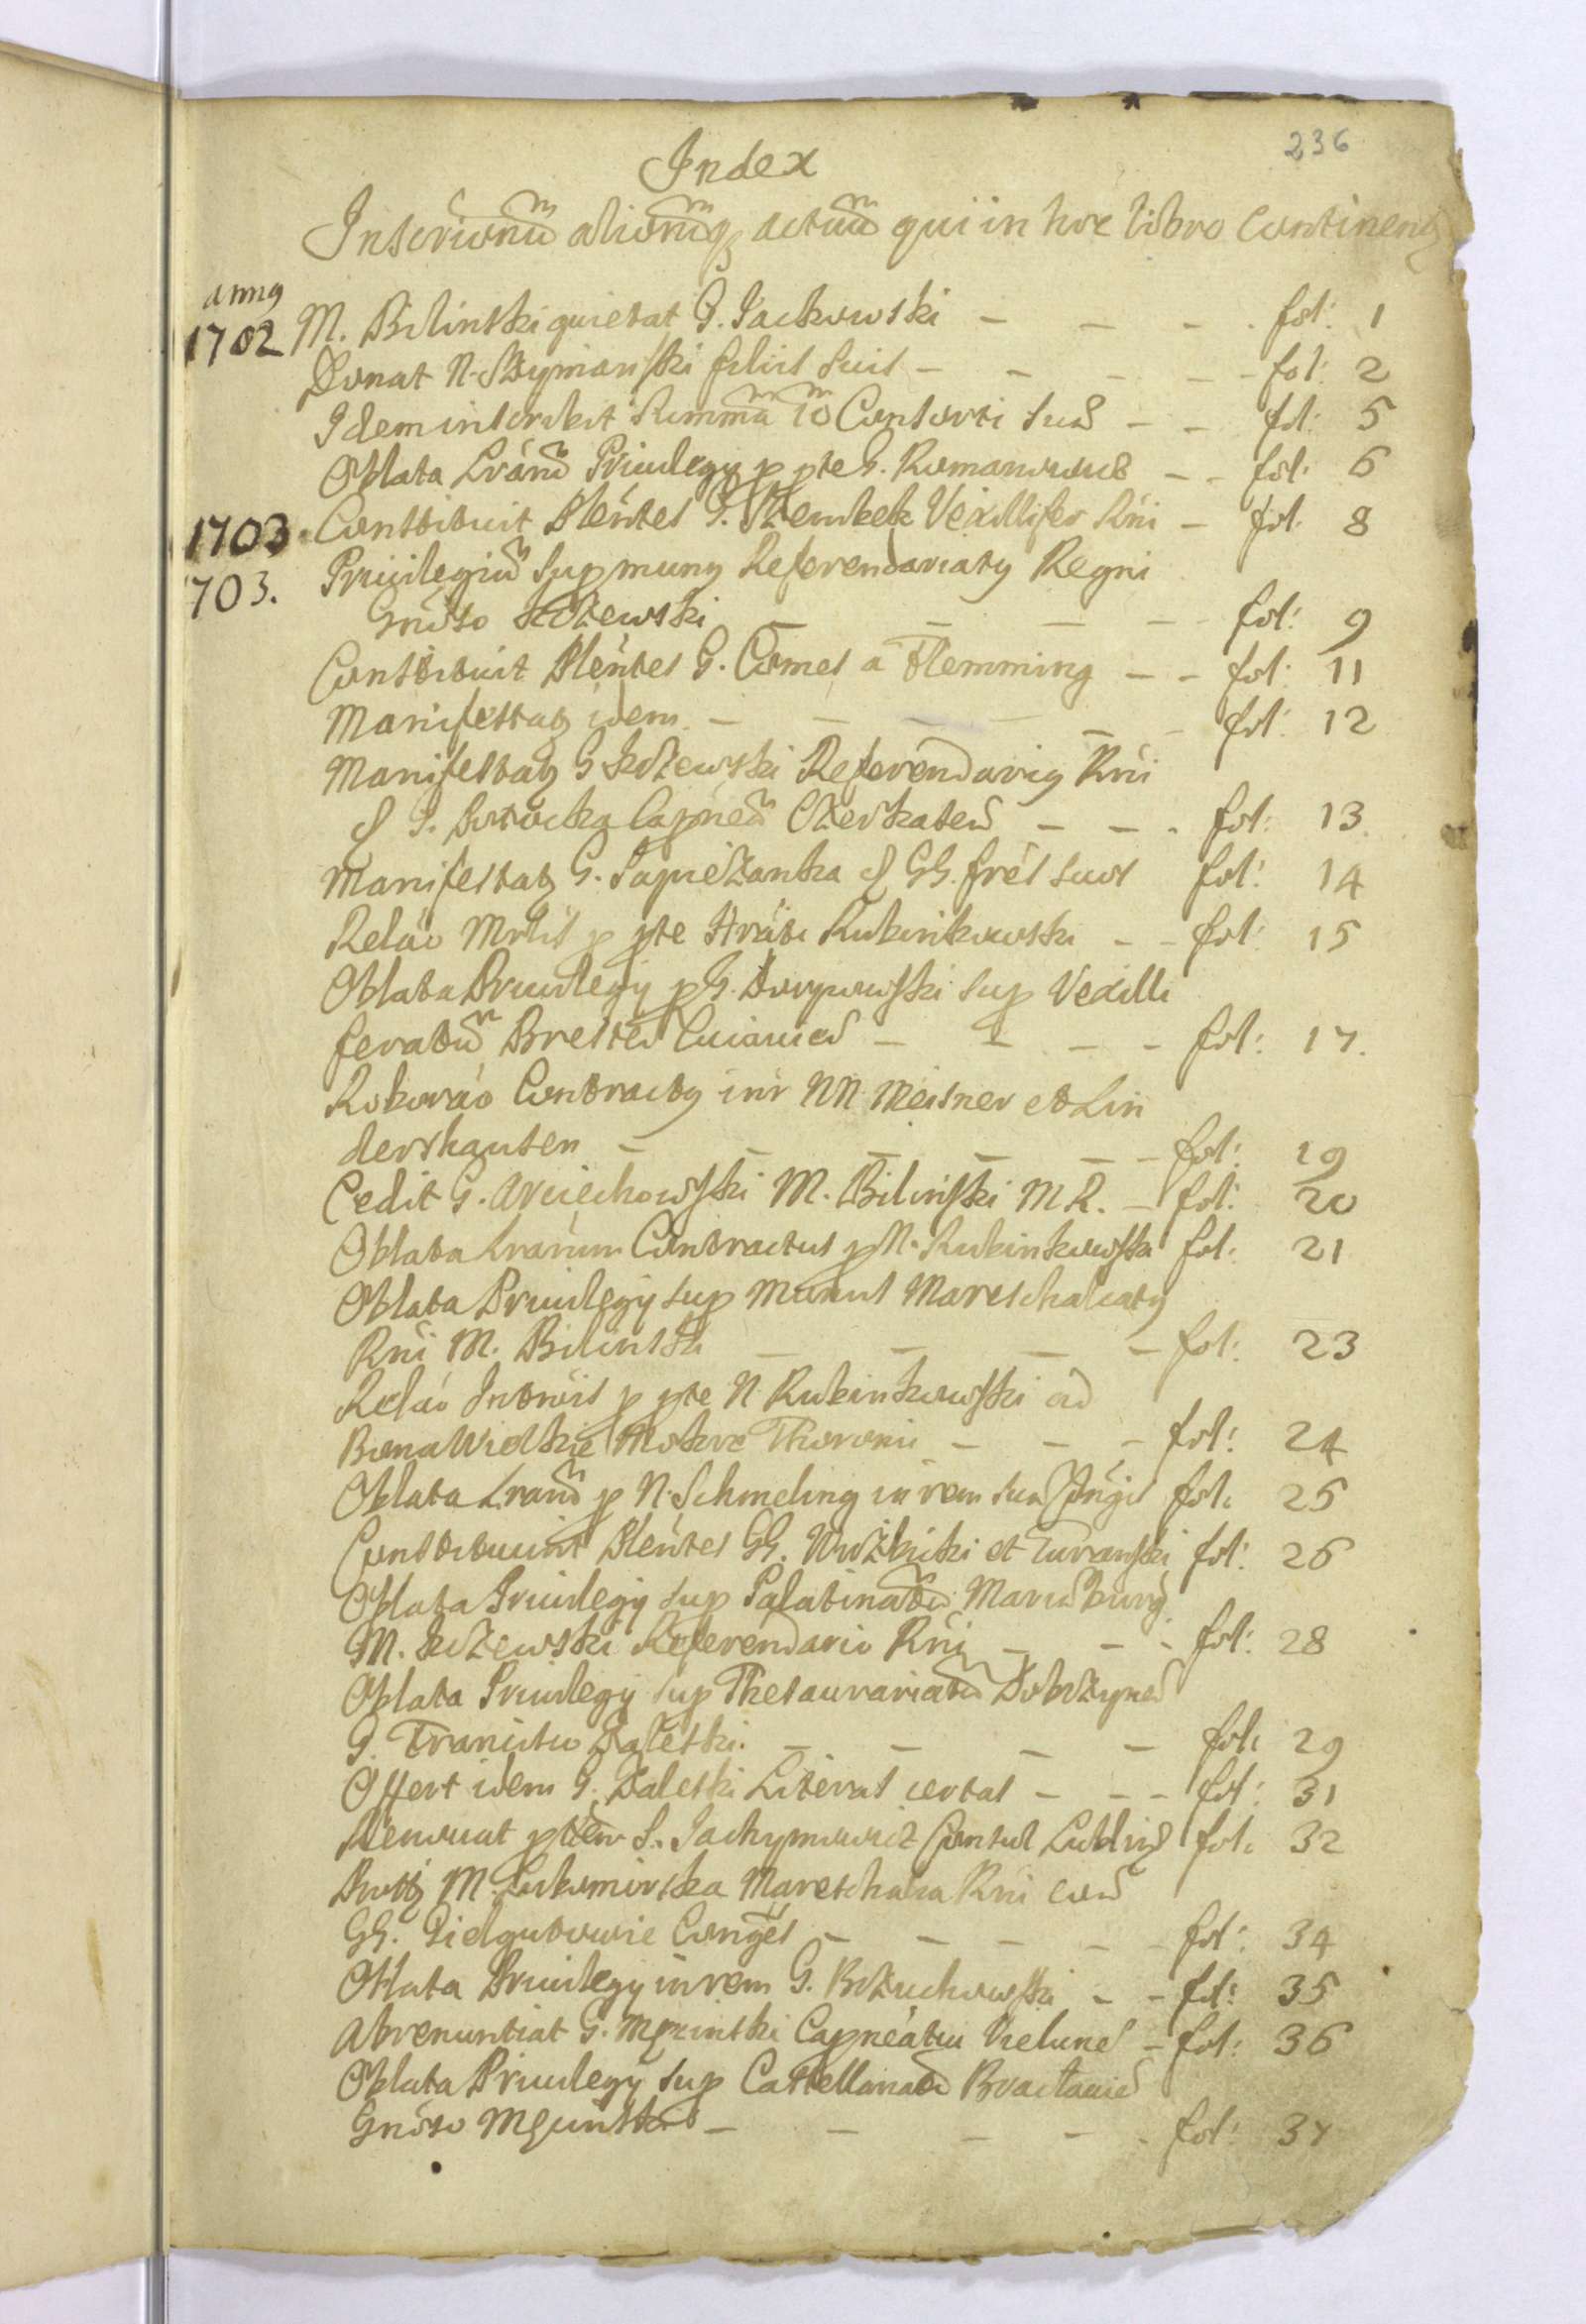 236
Index
Inscrionũ aliorũq actuũ qui in hoc libro continent
anno
1702 M. Bilinski quietat G. Jackowski fol: 1
Donat N. Szymanski filiis suis fol: 2
Idem inscribit summã Consorti suã fol: 5
Oblata Lrarũ Priuilegy p pte G. Romanowicz fol: 6
1703 Constituit Plentes G. Szembek Vexillifer Rni fol: 8
703. Priuilegiũ sup munus Referendariatus Regni
Gnoso Kczewski fol: 9
Constituit Plentes G. Comes a Flemming fol: 11
Manifestat idem fol: 12
Manifestat G Kczewski Referendarius Rni
G. Potocka Capneã Czerkasteñ fol: 13.
Manifestat G. Sapiezanka GG. frēs suos fol: 14
Relāo p pte Hrãbi Rubinkowski fol: 15
Oblata Priuilegij p G. Dorpowski sup Vexilli
feratũ Bresteñ Cuiauieñ fol: 17.
Roborão Contractus intr NN Meisner et Lin
dershausen fol: 19
Cedit G. Woiechowski M. Bilinski M R. fol: 20
Oblata Lrarum Contractus p N. Rubinkowski fol: 21
Oblata Priuilegij sup munus Mareschalcatus
Rni M. Bilinski fol: 23
Relāo Intrõis p pte N Rubinkowski ad
Bona Wielkie Mokre Thoronii fol: 24
Oblata Lrarũ p N. Schmeling in rem sua Cõngis fol: 25
Constituunt Plentes GG. Wuzkiski et Turranski fol: 26
Oblata Priuilegij sup Palatinatũ Marieburg
M. Kczewski Referendario Rni fol: 28
Oblata Priuilegij sup Thesaurariatũ Dobrzyneñ
G. Francisco Zaleski. fol: 29
Offert idem G. Zaleski Literas certas fol: 31
Renouat ptem S. Jachymowicz Consul Lubliñ fol: 32
Prottr M. Lubomirska Mareschalca Rni cora
GG. Gielgutowie Conges fol: 34
Oblata Priuilegij in rem G. Brzuchowski fol: 35
Abrenuntiat G. Mycinski Capneatui Vieluneñ fol: 36
Oblata Priuilegij sup Castellanatũ Braclauieñ
Gnoso Mycinski fol: 37